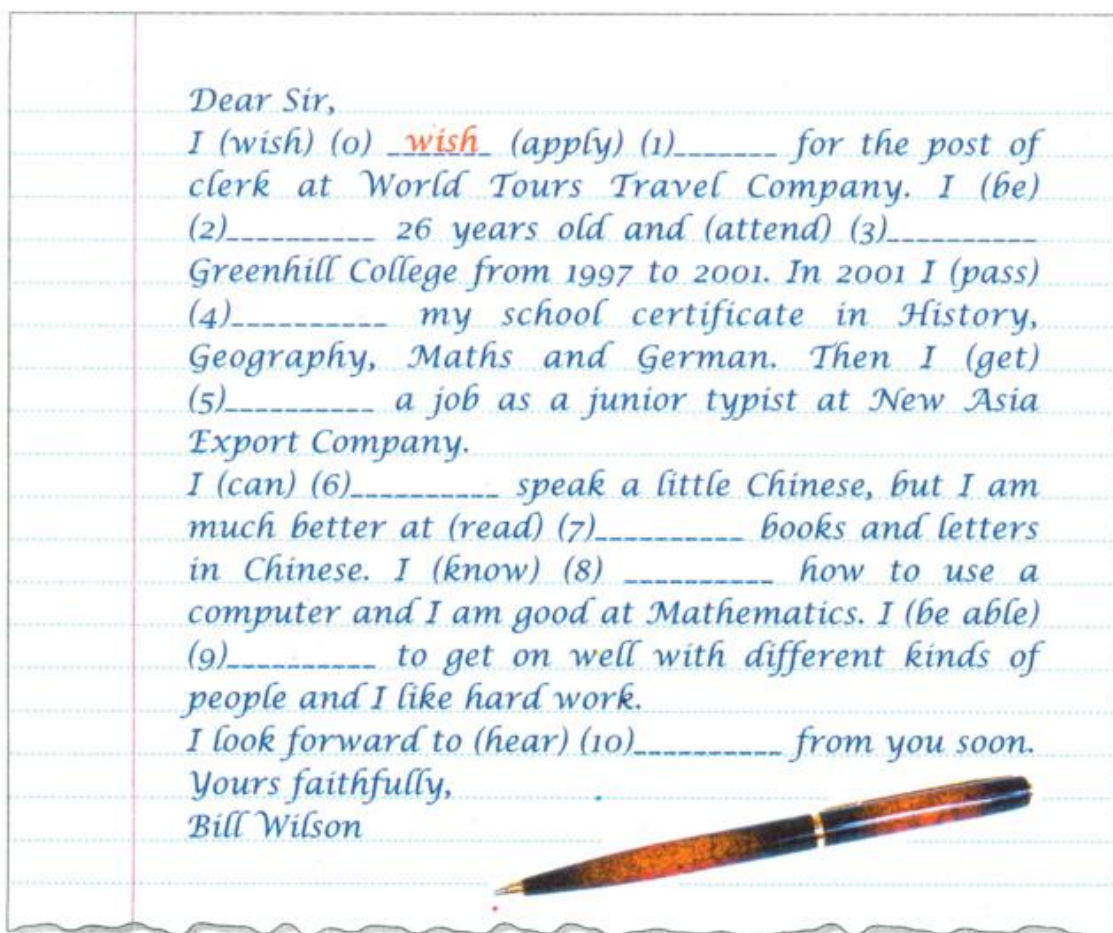 Dear Sir,
I (wish) (0) __wish__ (apply) (1)_______ for the post of
clerk at World Tours Travel Company. I (be)
(2)__________ 26 years old and (attend) (3)__________
Greenhill College from 1997 to 2001. In 2001 I (pass)
(4)__________ my school certificate in History,
Geography, Maths and German. Then I (get)
(5)__________ a job as a junior typist at New Asia
Export Company.
I (can) (6)__________ speak a little Chinese, but I am
much better at (read) (7)__________ books and letters
in Chinese. I (know) (8) __________ how to use a
computer and I am good at Mathematics. I (be able)
(9)__________ to get on well with different kinds of
people and I like hard work.
I look forward to (hear) (10)__________ from you soon.
Yours faithfully,
Bill Wilson